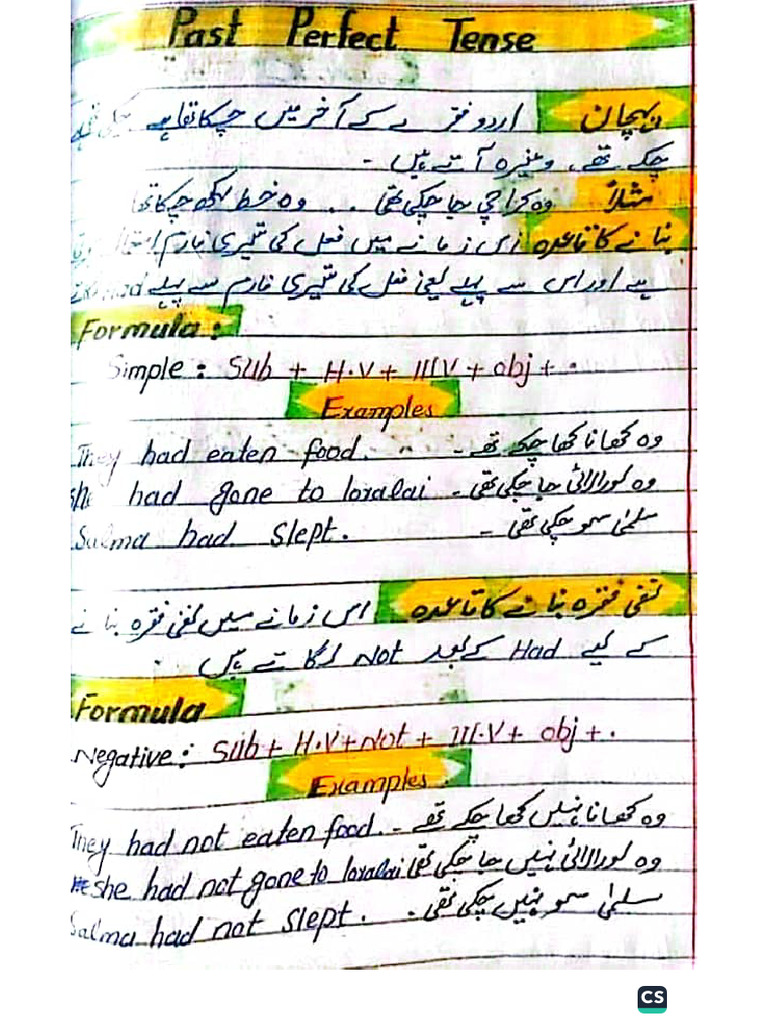 Past Perfect Tense
پہچان اردو فقرے کے آخر میں چکا تھا
چکے تھے، وغیرہ آتے ہیں -
مثلاً وہ کراچی جا چکی تھی . . وہ خط لکھ چکا تھا
بنانے کا قاعدہ اس زمانے میں فعل کی تیسری فارم
ہے اور اس سے پہلے یعنی فعل کی تیسری فارم سے پہلے had
Formula:
Simple: Sub + H.V + III V + obj + .
Examples
They had eaten food. وہ کھانا کھا چکے تھے -
She had gone to loralai وہ لورالائی جا چکی تھی -
Salma had slept. سلمٰی سو چکی تھی -
نفی فقرہ بنانے کا قاعدہ اس زمانے میں نفی فقرہ بنانے
کے لیے Had کے بعد Not لگاتے ہیں .
Formula
Negative: Sub + H.V + Not + III.V + obj + .
Examples
They had not eaten food. وہ کھانا نہیں کھا چکے تھے -
she had not gone to loralai وہ لورالائی نہیں جا چکی تھی
Salma had not slept. سلمٰی سو نہیں چکی تھی -
CS